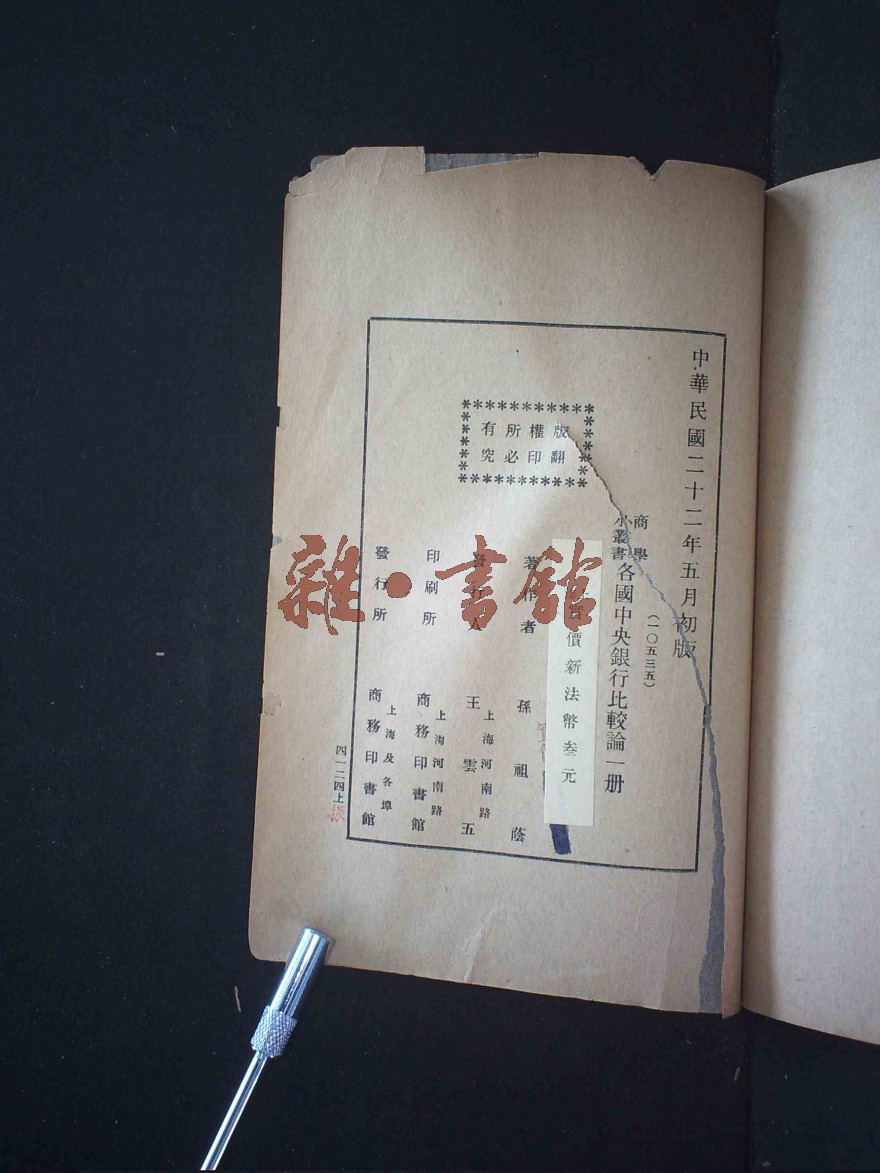 中華民國二十二年五月初版
(一〇五三五)
商學
小叢書
各國中央銀行比較論一册
實價新法幣叁元
版權所有
翻印必究
著作者 孫祖蔭
發行人 王雲五
上海河南路
印刷所 商務印書館
上海河南路
發行所 商務印書館
上海及各埠
四一二四上
雜·書館